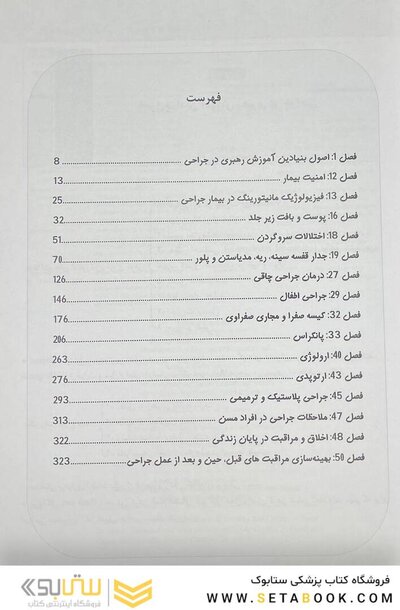 فهرست
فصل 1: اصول بنیادین آموزش رهبری در جراحی ........ 8
فصل 12: امنیت بیمار ........ 13
فصل 13: فیزیولوژیک مانیتورینگ در بیمار جراحی ........ 25
فصل 16: پوست و بافت زیر جلد ........ 32
فصل 18: اختلالات سروگردن ........ 51
فصل 19: جدار قفسه سینه، ریه، مدیاستن و پلور ........ 70
فصل 27: درمان جراحی چاقی ........ 126
فصل 29: جراحی اطفال ........ 146
فصل 32: کیسه صفرا و مجاری صفراوی ........ 176
فصل 33: پانکراس ........ 206
فصل 40: ارولوژی ........ 263
فصل 43: ارتوپدی ........ 276
فصل 45: جراحی پلاستیک و ترمیمی ........ 293
فصل 47: ملاحظات جراحی در افراد مسن ........ 313
فصل 48: اخلاق و مراقبت در پایان زندگی ........ 322
فصل 50: بهینه‌سازی مراقبت های قبل، حین و بعد از عمل جراحی ........ 323
فروشگاه کتاب پزشکی ستابوک
WWW.SETABOOK.COM
ستابوک
فروشگاه اینترنتی کتاب